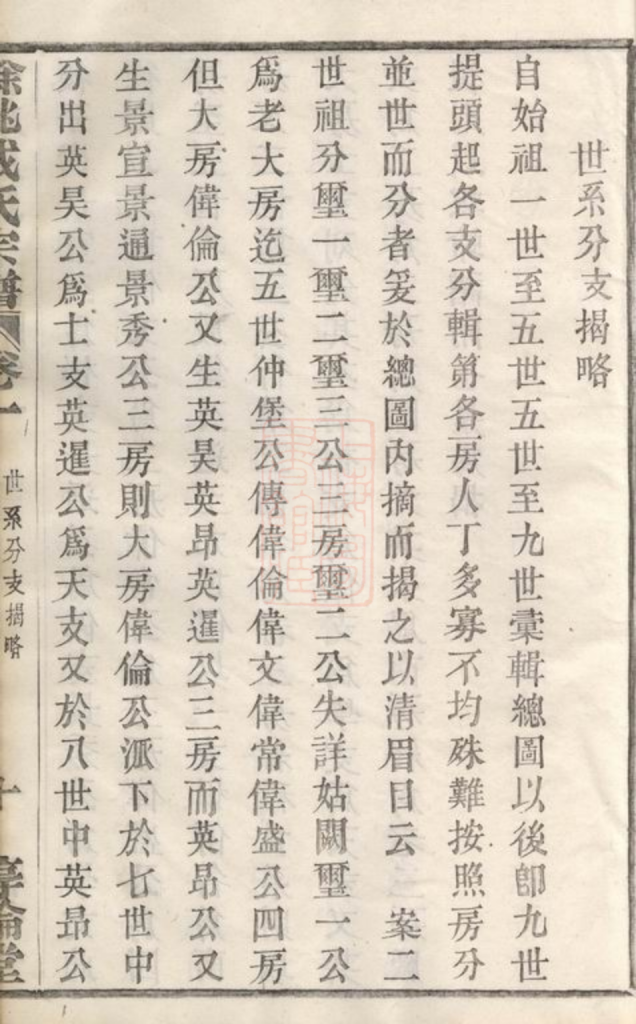 世系分支揭略
自始祖一世至五世五世至九世彙輯總圖以後卽九世
提頭起各支分輯第各房人丁多寡不均殊難按照房分
並世而分者爰於總圖內摘而揭之以清眉目云　案二
世祖分璽一璽二璽三公三房璽二公失詳姑闕璽一公
爲老大房迄五世仲堡公傳偉倫偉文偉常偉盛公四房
但大房偉倫公又生英昊英昂英暹公三房而英昂公又
生景宣景通景秀公三房則大房偉倫公派下於七世中
分出英昊公爲士支英暹公爲天支又於八世中英昂公
餘姚戚氏宗譜　卷一
世系分支揭略
十